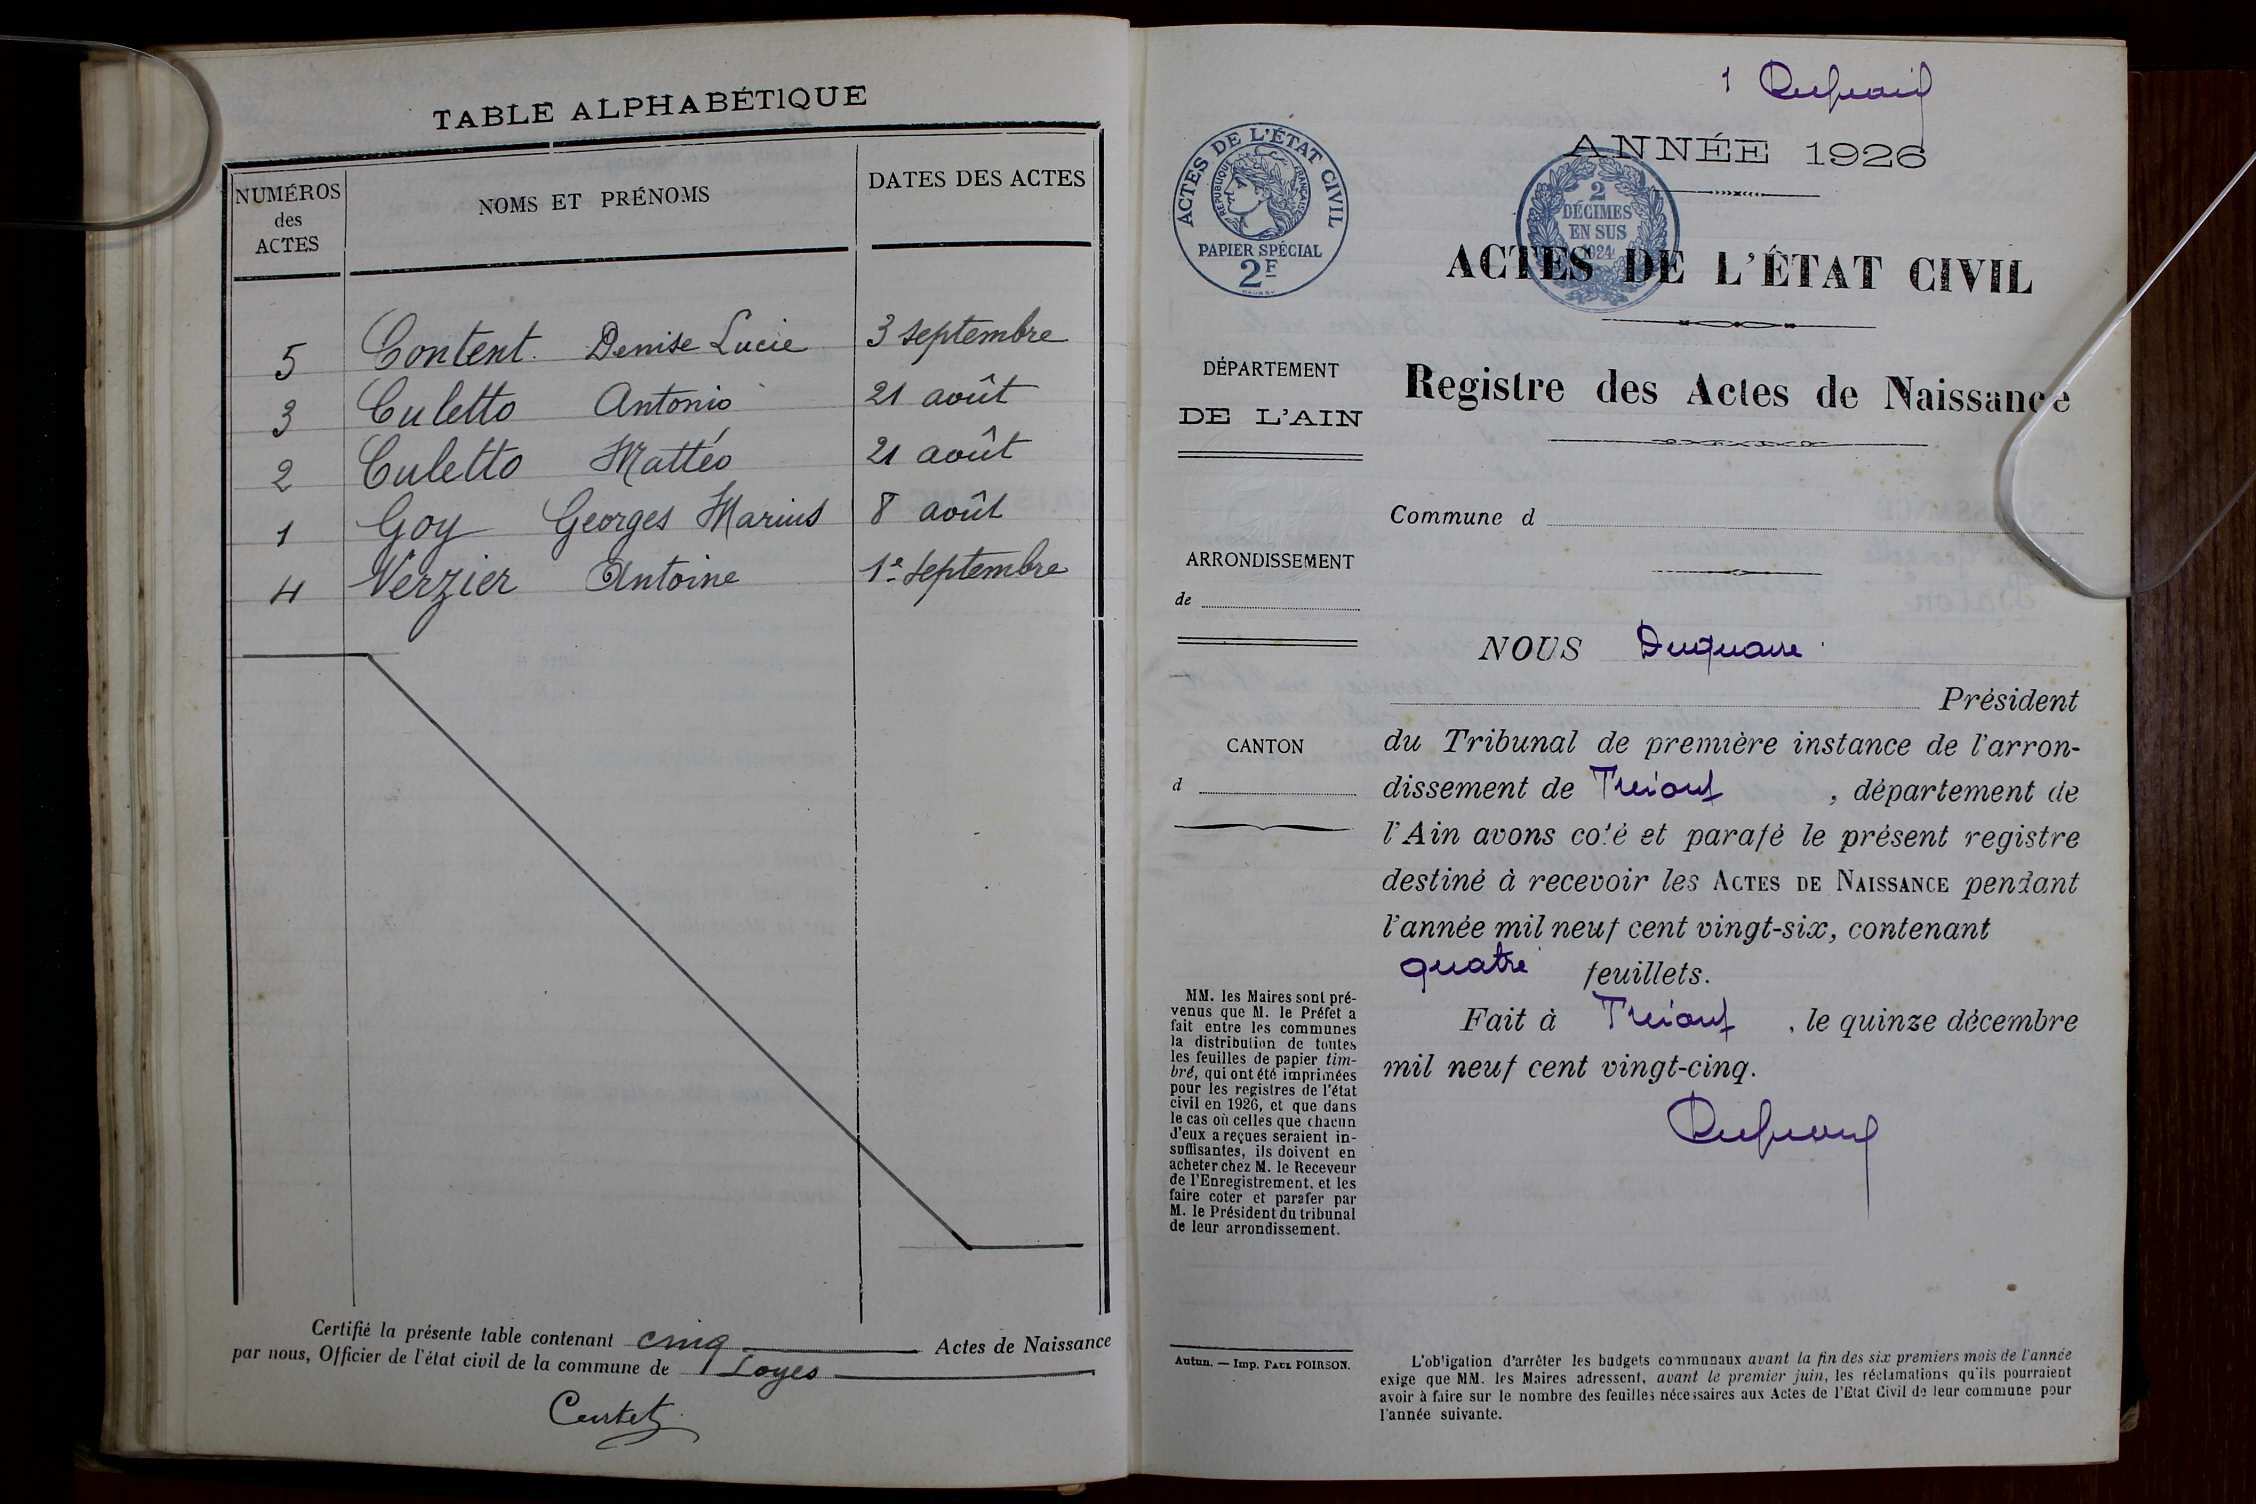 TABLE ALPHABÉTIQUE
NUMÉROS des ACTES
NOMS ET PRÉNOMS
DATES DES ACTES
5 Content Denise Lucie 3 septembre
3 Culetto Antonio 21 août
2 Culetto Mattéo 21 août
1 Goy Georges Marius 8 août
4 Verzier Antoine 1e septembre
Certifié la présente table contenant cinq Actes de Naissance
par nous, Officier de l'état civil de la commune de Loyes
Curtet
1
ANNÉE 1926
ACTES DE L'ÉTAT CIVIL
RÉPUBLIQUE FRANÇAISE
PAPIER SPÉCIAL
2F
2
DÉCIMES
EN SUS
1924
ACTES DE L'ÉTAT CIVIL
Registre des Actes de Naissance
DÉPARTEMENT
DE L'AIN
Commune d
ARRONDISSEMENT
de
CANTON
d
NOUS Duquaire
Président
du Tribunal de première instance de l'arron-
dissement de Trévoux, département de
l'Ain avons coté et parafé le présent registre
destiné à recevoir les ACTES DE NAISSANCE pendant
l'année mil neuf cent vingt-six, contenant
quatre feuillets.
Fait à Trévoux, le quinze décembre
mil neuf cent vingt-cinq.
MM. les Maires sont pré-
venus que M. le Préfet a
fait entre les communes
la distribution de toutes
les feuilles de papier tim-
bré, qui ont été imprimées
pour les registres de l'état
civil en 1926, et que dans
le cas où celles que chacun
d'eux a reçues seraient in-
suffisantes, ils doivent en
acheter chez M. le Receveur
de l'Enregistrement, et les
faire coter et parafer par
M. le Président du tribunal
de leur arrondissement.
Autun. — Imp. PAUL POIRSON.
L'obligation d'arrêter les budgets communaux avant la fin des six premiers mois de l'année
exige que MM. les Maires adressent, avant le premier juin, les réclamations qu'ils pourraient
avoir à faire sur le nombre des feuilles nécessaires aux Actes de l'Etat Civil de leur commune pour
l'année suivante.